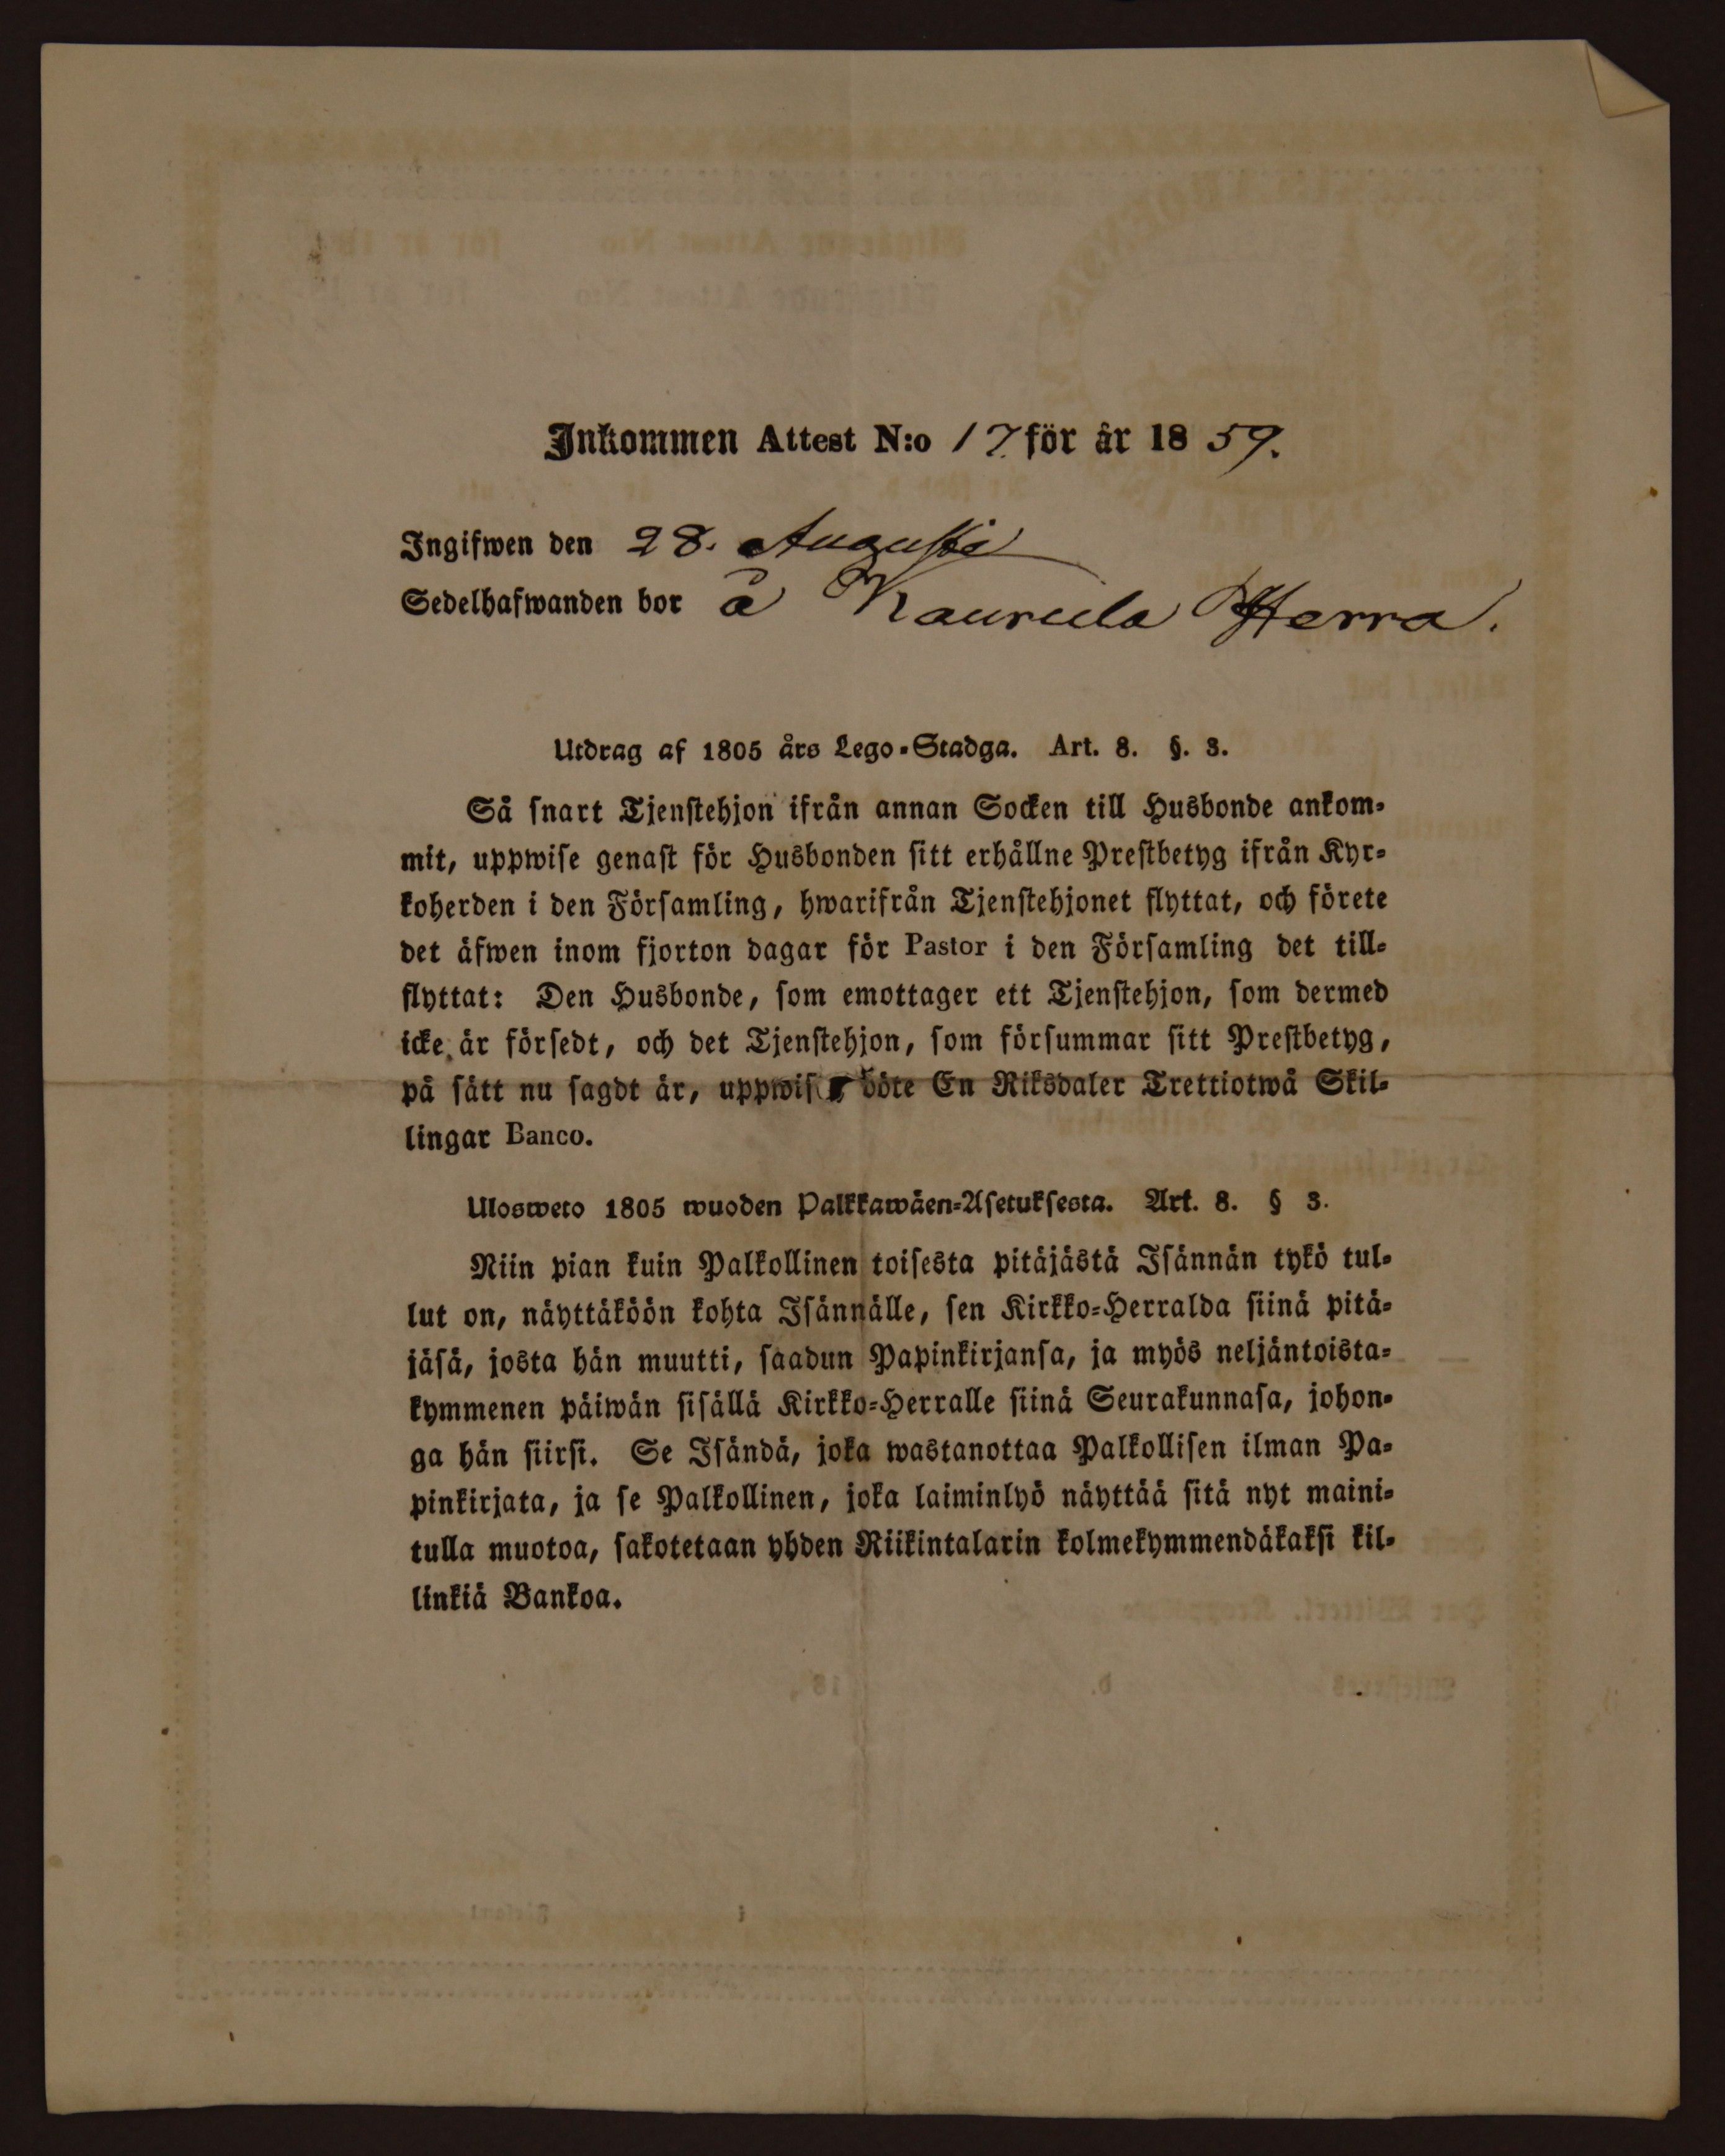 Inkommen Attest N:o 17 för år 1859.
Ingifwen den 28. Augusti
Sedelhafwanden bor å Kaurula Herra.
Utdrag af 1805 års Lego-Stadga. Art. 8. §. 3.
Så snart Tjenstehjon ifrån annan Socken till Husbonde ankom-
mit, uppwise genast för Husbonden sitt erhållne Prestbetyg ifrån Kyr-
koherden i den Församling, hwarifrån Tjenstehjonet flyttat, och förete
det äfwen inom fjorton dagar för Pastor i den Församling det till-
flyttat: Den Husbonde, som emottager ett Tjenstehjon, som dermed
icke är försedt, och det Tjenstehjon, som försummar sitt Prestbetyg,
på sätt nu sagdt är, uppwis böte En Riksdaler Trettiotwå Skil-
lingar Banco.
Ulosweto 1805 wuoden Palkkawäen-Asetuksesta. Art. 8. § 3.
Niin pian kuin Palkollinen toisesta pitäjästä Isännän tykö tul-
lut on, näyttäköön kohta Isännälle, sen Kirkko-Herralda siinä pitä-
jäsä, josta hän muutti, saadun Papinkirjansa, ja myös neljäntoista-
kymmenen päiwän sisällä Kirkko-Herralle siinä Seurakunnasa, johon-
ga hän siirsi. Se Isändä, joka wastanottaa Palkollisen ilman Pa-
pinkirjata, ja se Palkollinen, joka laiminlyö näyttää sitä nyt maini-
tulla muotoa, sakotetaan yhden Riikintalarin kolmekymmendäkaksi kil-
linkiä Bankoa.